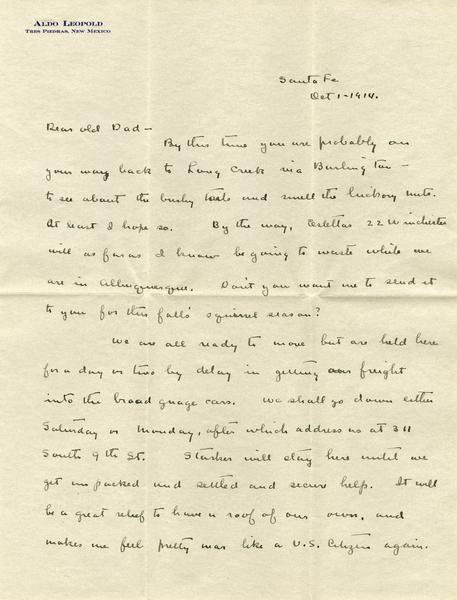 ALDO LEOPOLD
TRES PIEDRAS, NEW MEXICO
Santa Fe
Oct 1-1914.
Dear old Dad-
By this time you are probably on
your way back to Lony Creek via Burlington-
to see about the bushy tails and smell the hickory nuts.
At least I hope so. By the way, Estellas 22 Winchester
will as far as I know be going to waste while we
are in Albuquerque. Don't you want me to send it
to you for this fall's squirrel season?
We are all ready to move but are held here
for a day or two by delay in getting our freight
into the broad guage cars. We shall go down either
Saturday or Monday, after which address us at 311
South 9th St. Starker will stay here until we
get unpacked and settled and secure help. It will
be a great relief to have a roof of our own, and
makes me feel pretty near like a U.S. Citizen again.